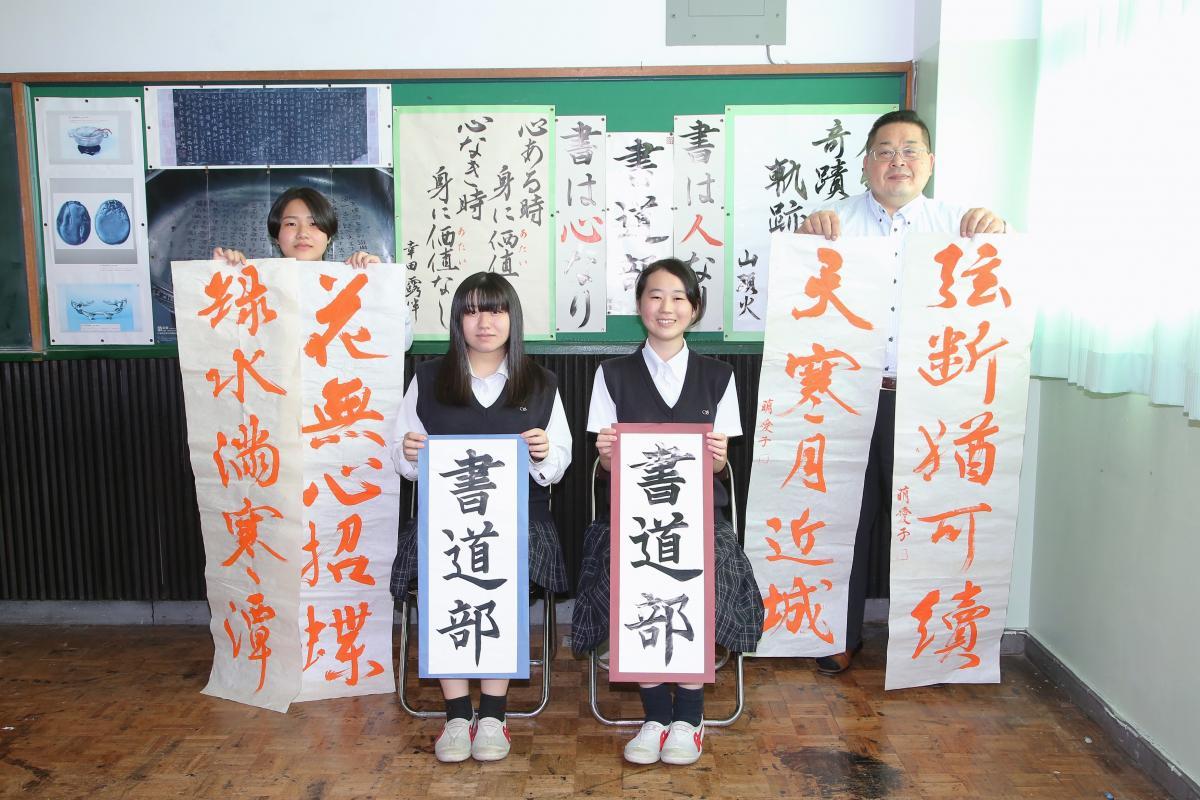 心ある時
身に価値
あたい
心なき時
身に価値なし
あたい
幸田露伴
書は心なり
書道部
書は人なり
奇蹟
軌跡
山頭火
花無心招蝶
緑水満寒潭
書道部
書道部
弦断猶可續
萌愛子
天寒月近城
萌愛子